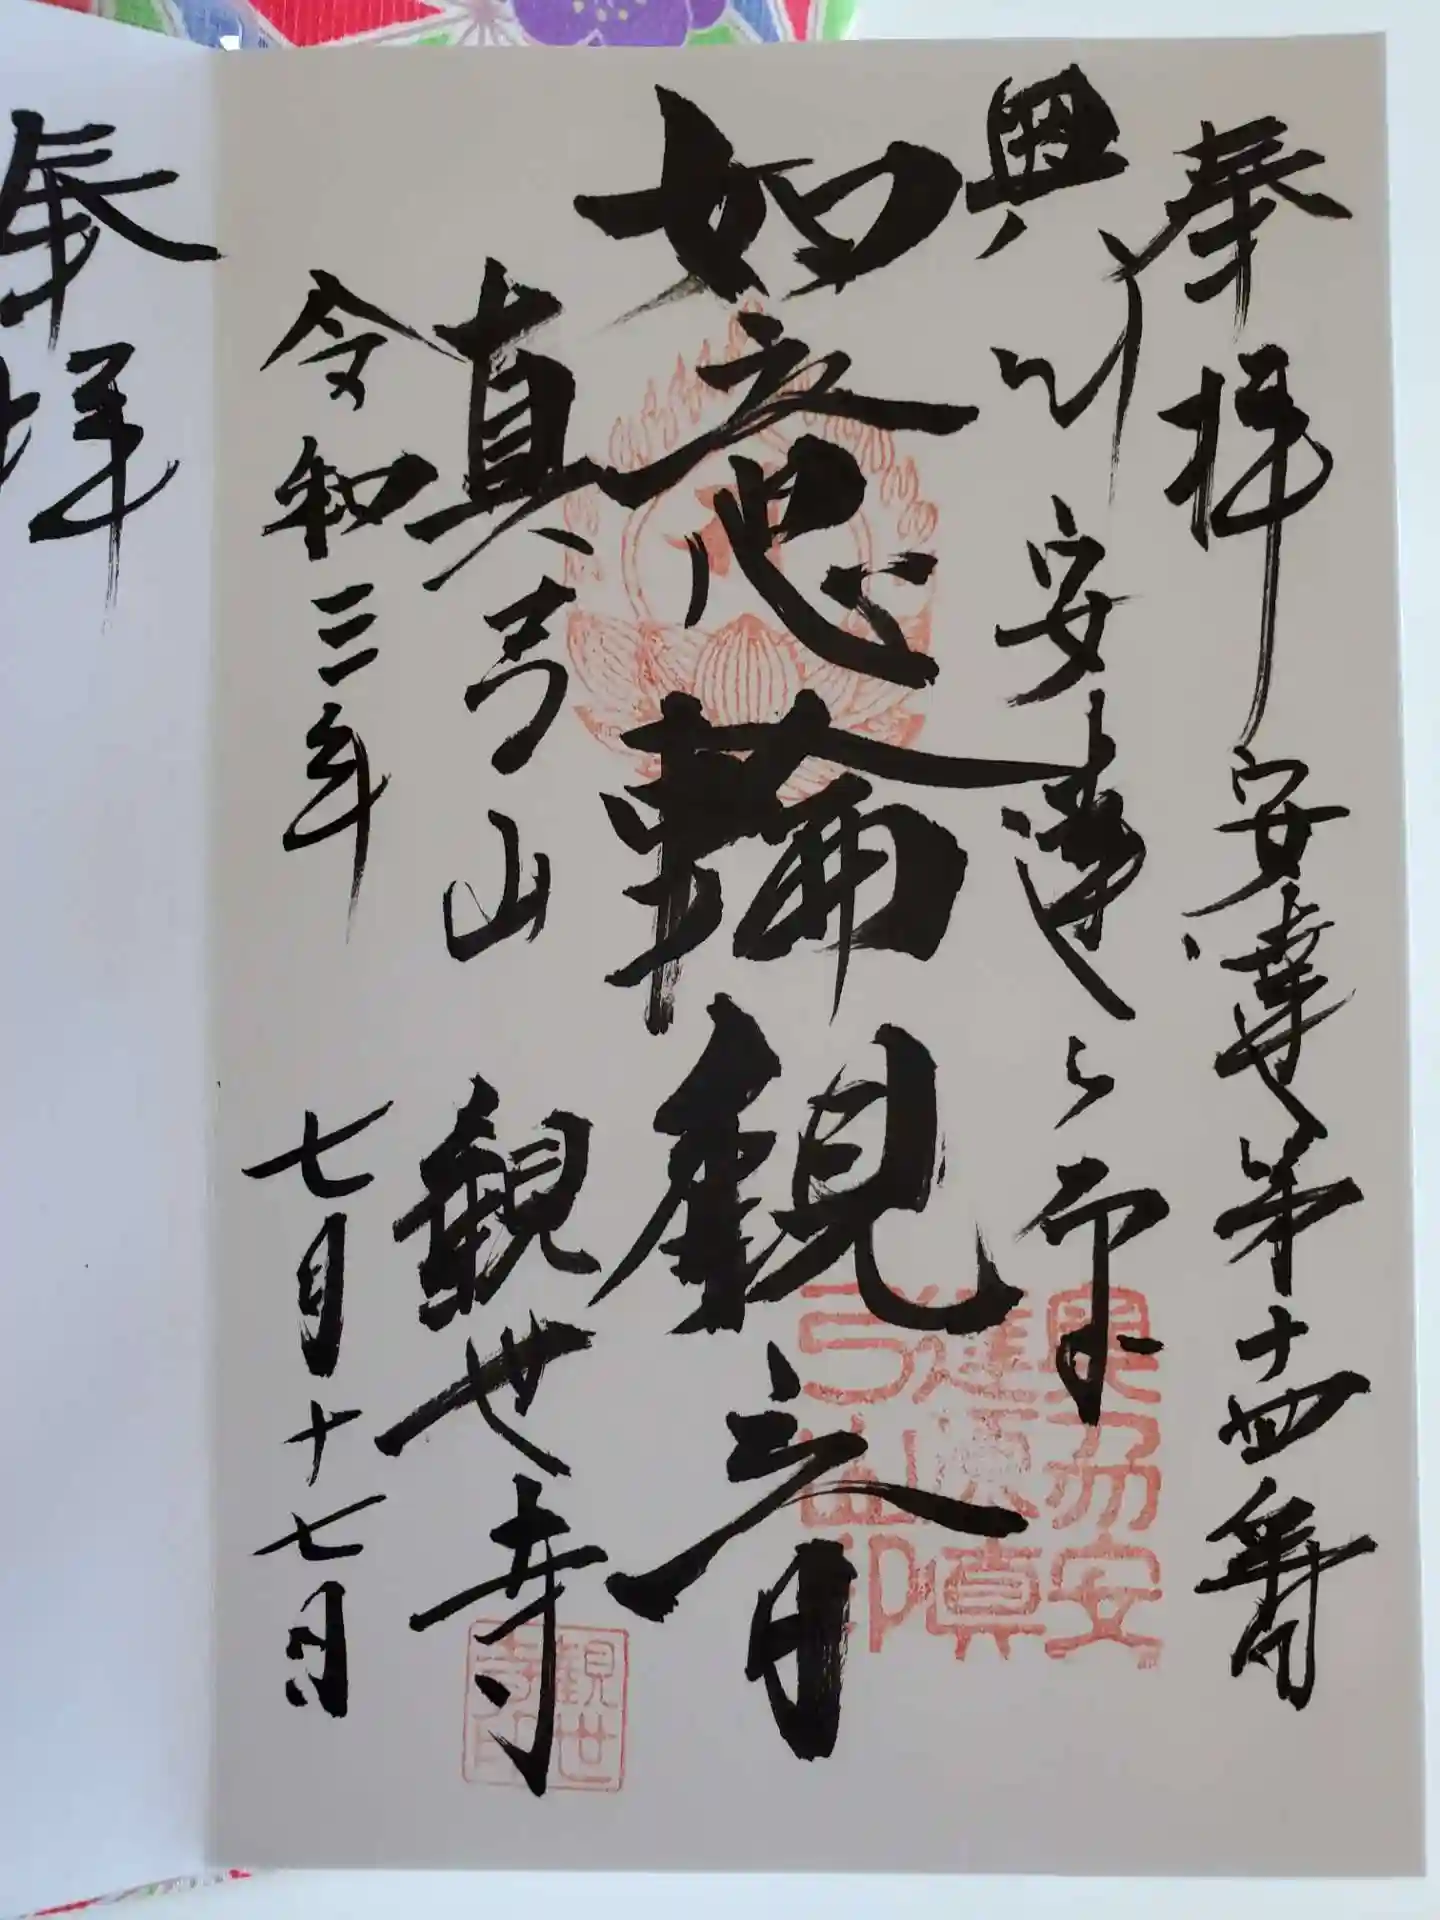 奉拝 安達第十四番
奥州 安達ヶ原
如意輪観音
真弓山 観世寺
令和三年 七月十七日
奥刕安
達原真
弓山印
観世
寺印
奉拝